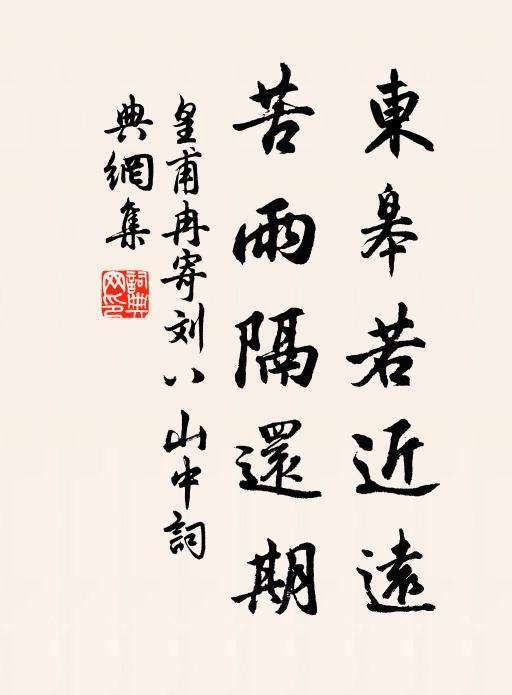 東皋若近遠
苦雨隔還期
皇甫冉寄刘八山中詞
典網集
詞典網印